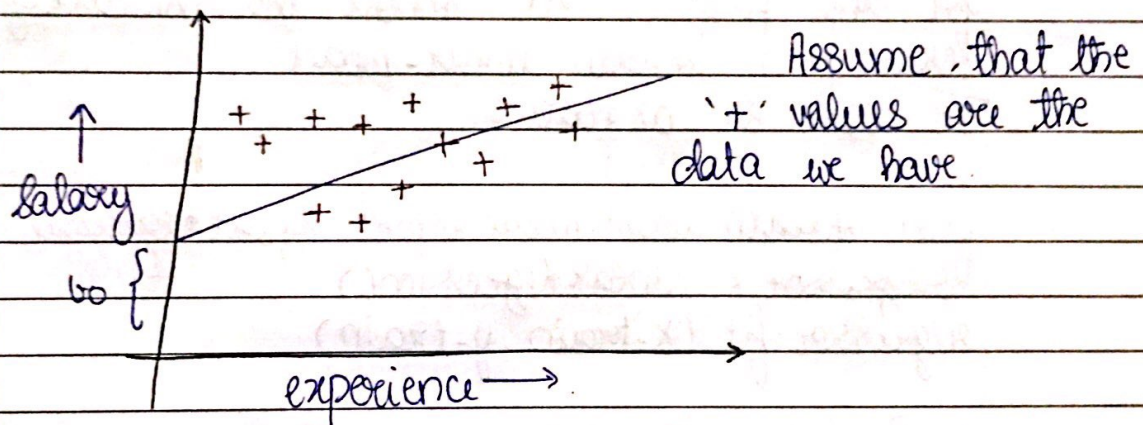 Assume that the
'+' values are the
data we have.
↑
Salary
b0 {
experience →